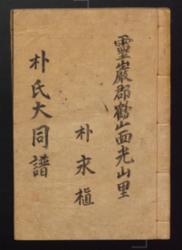 靈巖郡鶴山面光山里
朴永植
朴氏大同譜